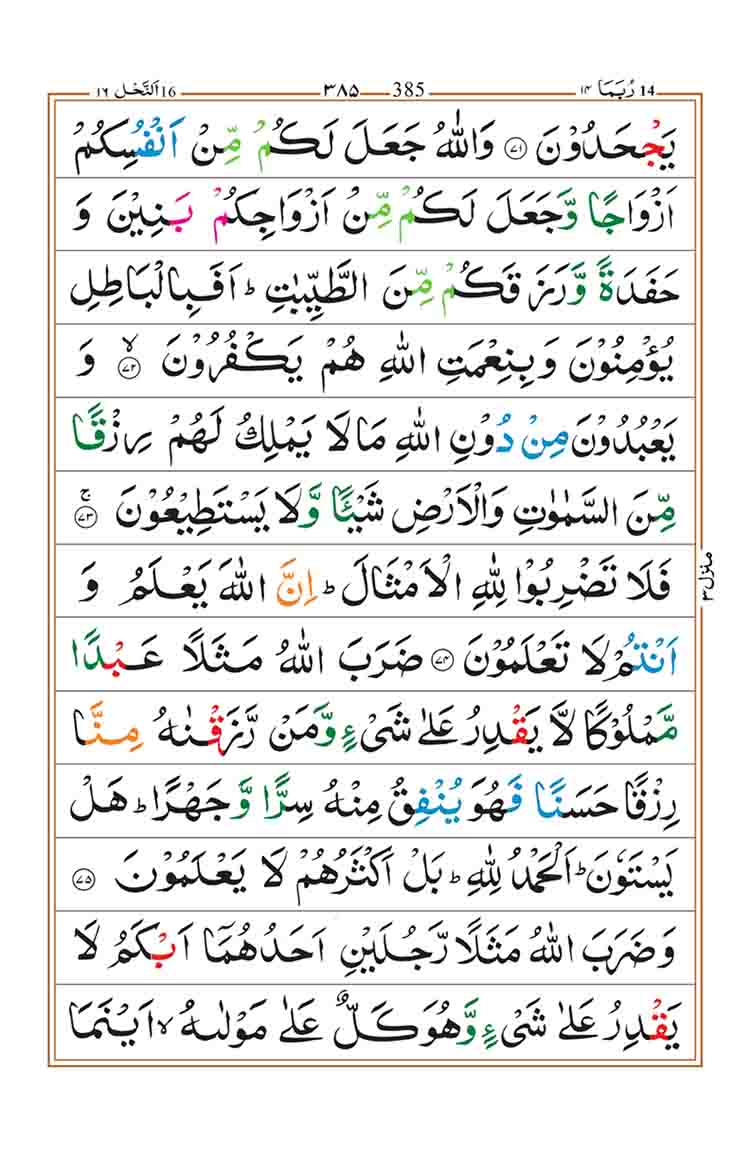 رُبَمَا ١٤ 14 385 ٣٨٥ اَلنَّحْل ١٦ 16
يَجْحَدُوْنَ ۟۷۱ وَاللّٰهُ جَعَلَ لَكُمْ مِّنْ اَنْفُسِكُمْ
اَزْوَاجًا وَّجَعَلَ لَكُمْ مِّنْ اَزْوَاجِكُمْ بَنِيْنَ وَ
حَفَدَةً وَّرَزَقَكُمْ مِّنَ الطَّيِّبٰتِ ؕ اَفَبِالْبَاطِلِ
يُؤْمِنُوْنَ وَبِنِعْمَتِ اللّٰهِ هُمْ يَكْفُرُوْنَ ۙ۷۲ وَ
يَعْبُدُوْنَ مِنْ دُوْنِ اللّٰهِ مَا لَا يَمْلِكُ لَهُمْ رِزْقًا
مِّنَ السَّمٰوٰتِ وَالْاَرْضِ شَيْئًا وَّلَا يَسْتَطِيْعُوْنَ ۚ۷۳
فَلَا تَضْرِبُوْا لِلّٰهِ الْاَمْثَالَ ؕ اِنَّ اللّٰهَ يَعْلَمُ وَ
اَنْتُمْ لَا تَعْلَمُوْنَ ۷۴ ضَرَبَ اللّٰهُ مَثَلًا عَبْدًا
مَّمْلُوْكًا لَّا يَقْدِرُ عَلٰى شَیْءٍ وَّمَنْ رَّزَقْنٰهُ مِنَّا
رِزْقًا حَسَنًا فَهُوَ يُنْفِقُ مِنْهُ سِرًّا وَّجَهْرًا ؕ هَلْ
يَسْتَوٗنَ ؕ اَلْحَمْدُ لِلّٰهِ ؕ بَلْ اَكْثَرُهُمْ لَا يَعْلَمُوْنَ ۷۵
وَضَرَبَ اللّٰهُ مَثَلًا رَّجُلَيْنِ اَحَدُهُمَاۤ اَبْكَمُ لَا
يَقْدِرُ عَلٰى شَیْءٍ وَّهُوَ كَلٌّ عَلٰى مَوْلٰىهُ ۙ اَيْنَمَا
منزل ۳